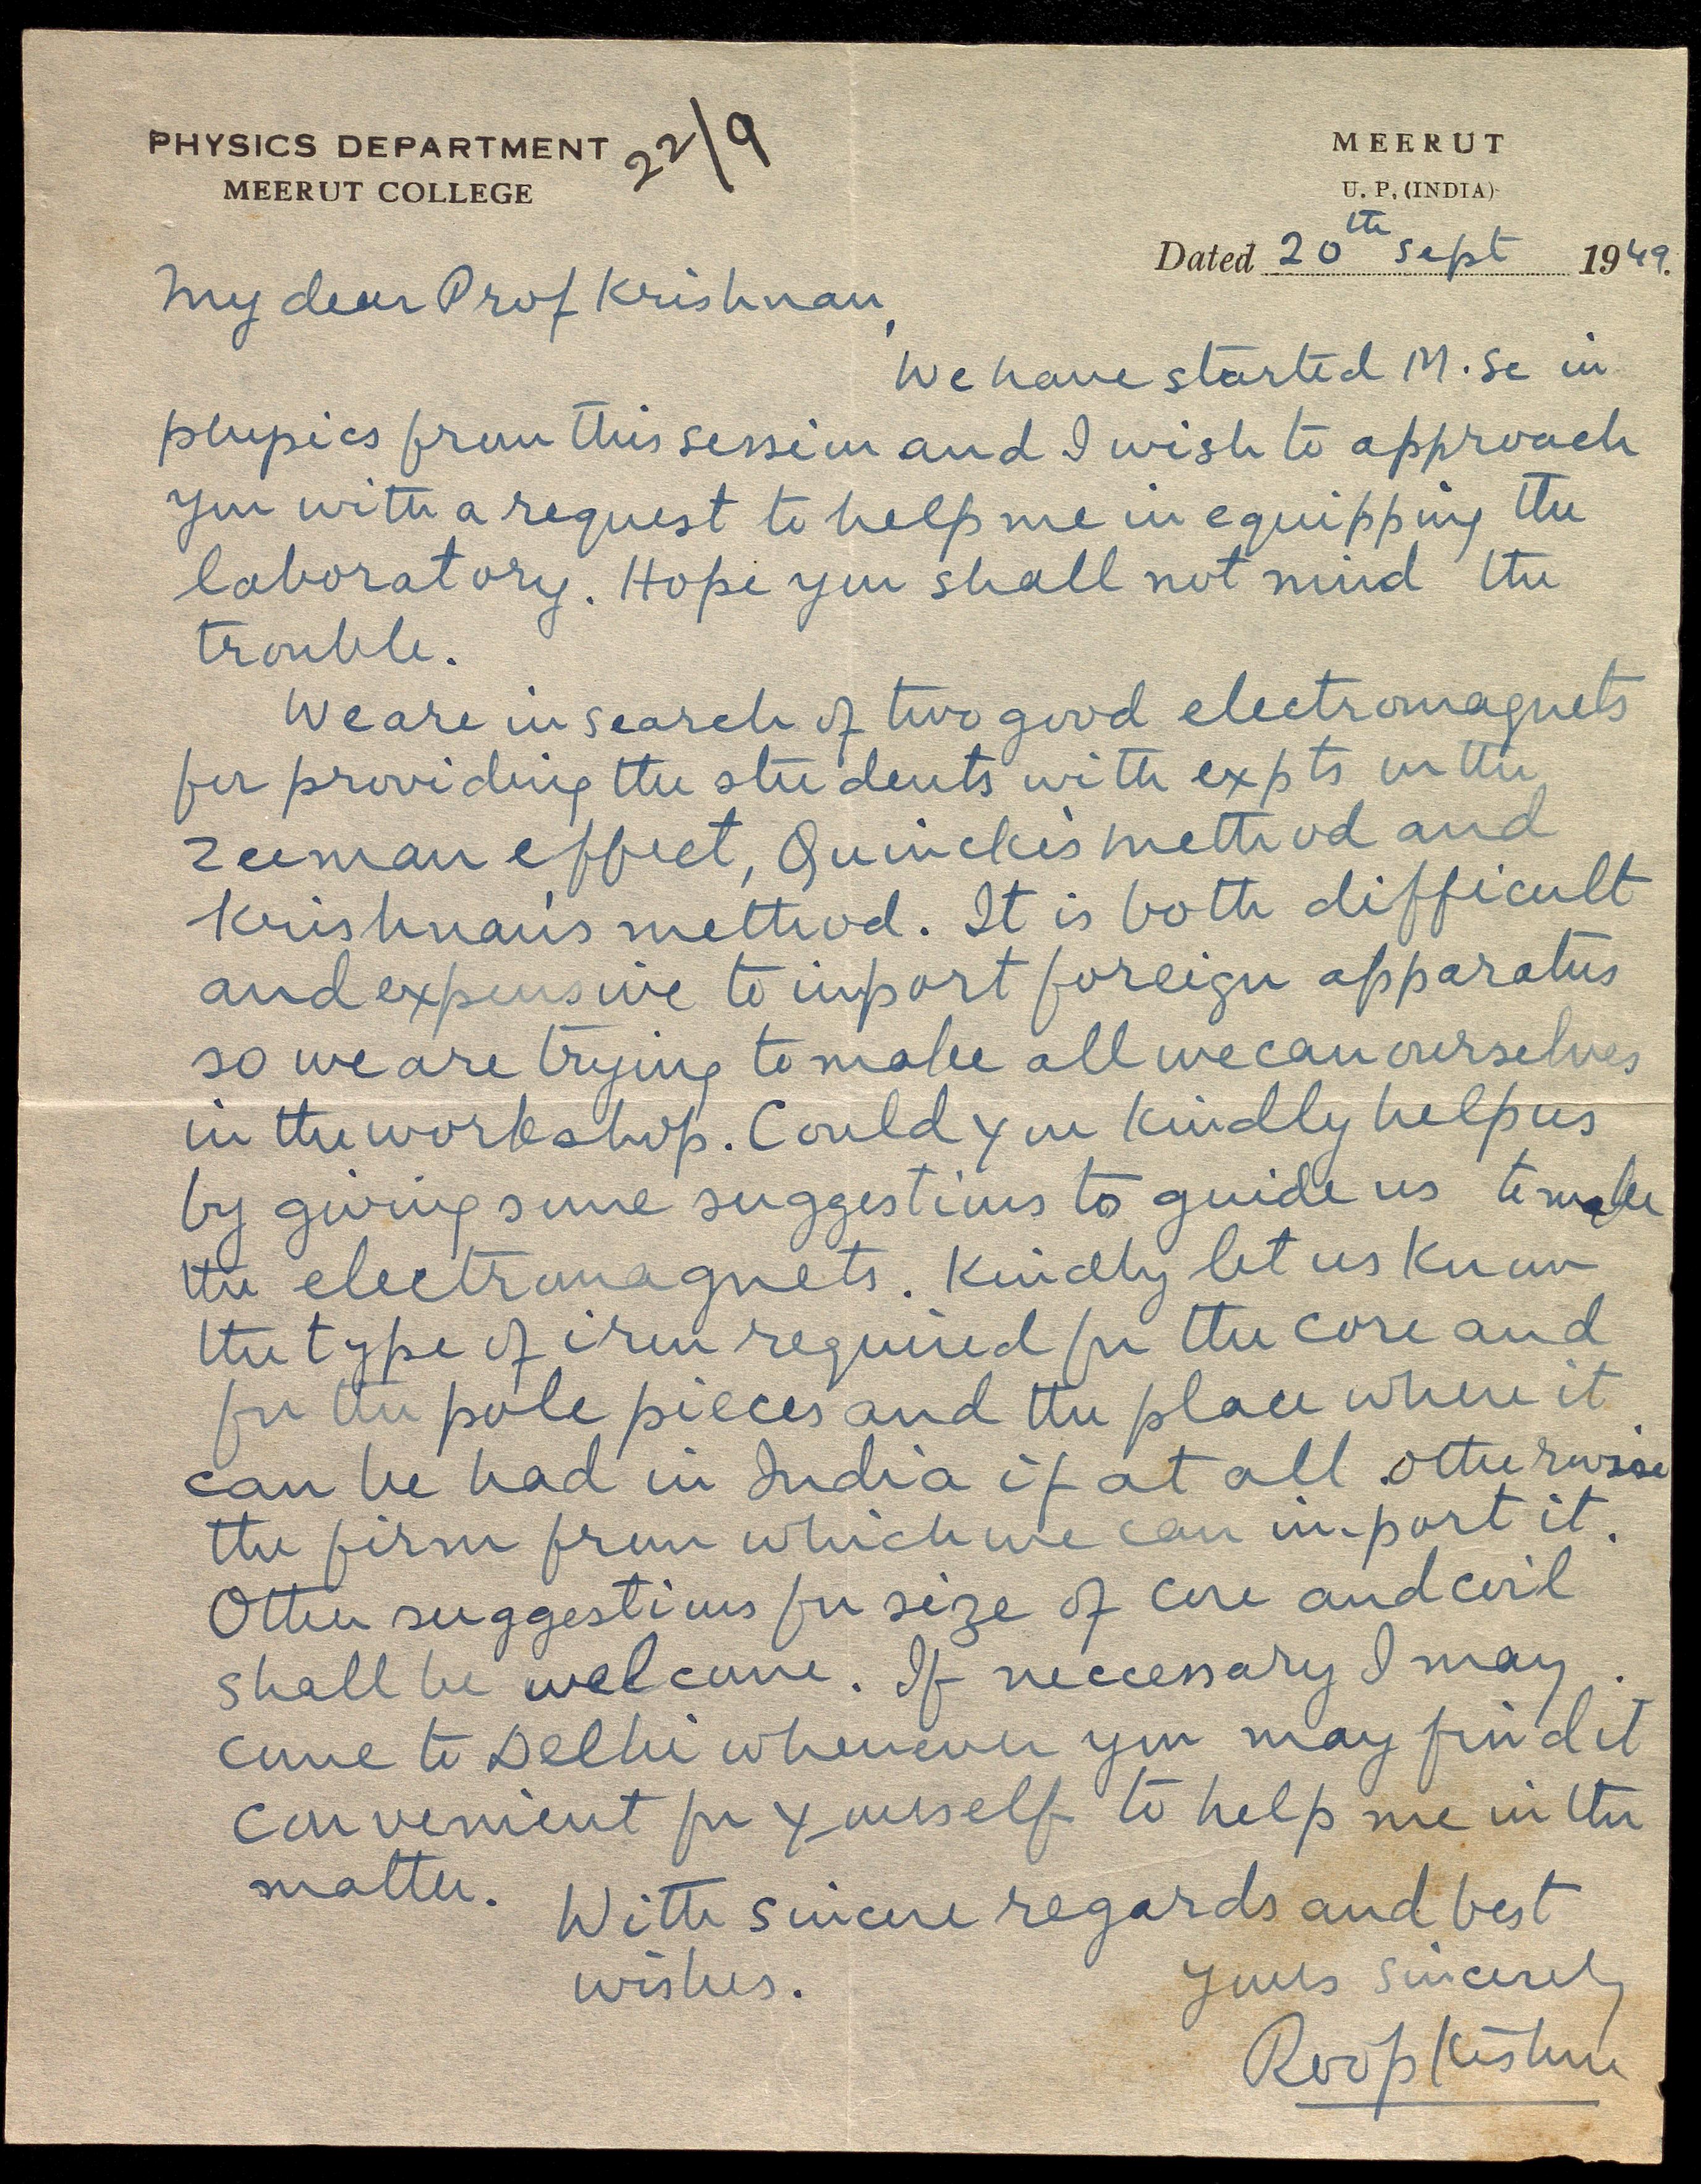 PHYSICS DEPARTMENT
MEERUT COLLEGE
22/9
MEERUT
U. P. (INDIA)
Dated 20th Sept 1949.
My dear Prof Krishnan,
We have started M.Sc in
physics from this session and I wish to approach
you with a request to help me in equipping the
laboratory. Hope you shall not mind the
trouble.
We are in search of two good electromagnets
for providing the students with expts on the
Zeeman effect, Quincke's method and
Krishnan's method. It is both difficult
and expensive to import foreign apparatus
so we are trying to make all we can ourselves
in the workshop. Could you kindly help us
by giving some suggestions to guide us to make
the electromagnets. Kindly let us know
the type of iron required for the core and
for the pole pieces and the place where it
can be had in India if at all otherwise
the firm from which we can import it.
Other suggestions for size of core and coil
shall be welcome. If neccessary I may
come to Delhi whenever you may find it
convenient for yourself to help me in the
matter.
With sincere regards and best
wishes.
Yours sincerely
Roop Kishore